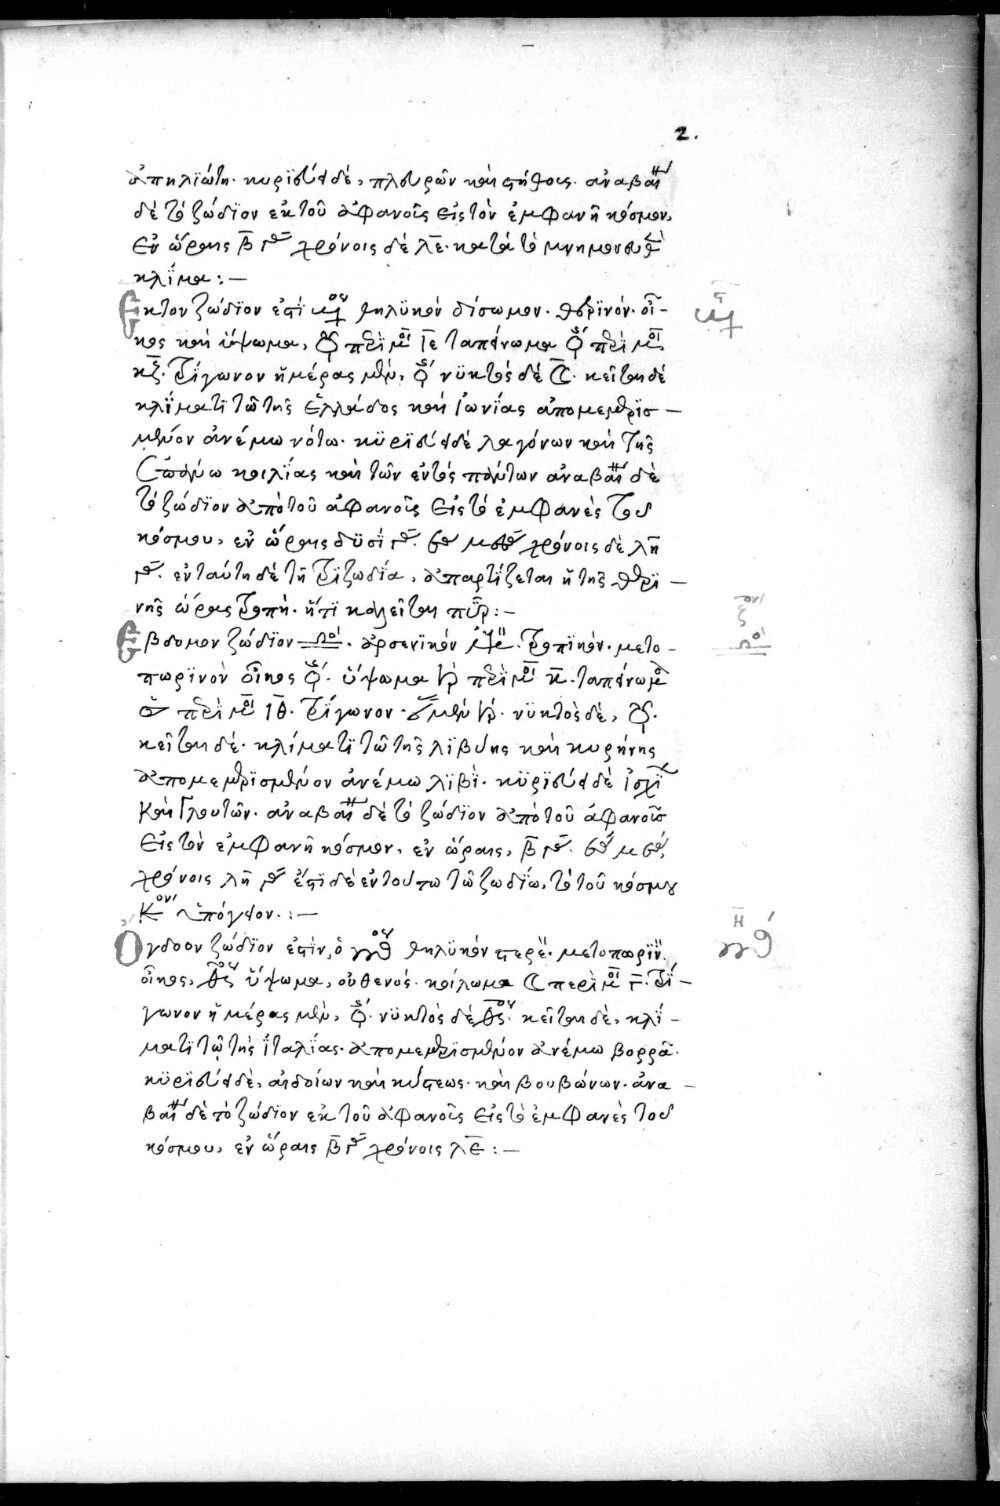 2.
ἀπηλϊώτη. κυρϊεύει δὲ, πλευρῶν καὶ στήθους. ἀναβαίν
δὲ τὸ ζώδϊον ἐκ τοῦ ἀφανοῦς εἰς τὸν ἐμφανῆ κόσμον,
ἐν ὥραις β̅ χρόνοις δὲ λ̅ε̅. κατὰ τὸ μνημονευθ
κλῖμα :—
Εκτον ζώδϊον ἐστὶ ♍ θηλϋκὸν δίσωμον. θερϊνόν. οἶ-
κος καὶ ὕψωμα, ☿ περὶ μοῖ ι̅ε̅ ταπείνωμα ♀ περὶ μοῖ
κ̅ζ̅. τρίγωνον ἡμέρας μὲν, ♀ νϋκτὸς δὲ ☾. κεῖται δὲ
κλίματϊ τῶ τῆς ἑλλάδος καὶ ϊωνίας ἀπομεμερϊσ —
μένον ἀνέμω νότω. κϋρϊεύει δὲ λαγόνων καὶ τῆς
κοιλίας καὶ τῶν ἐντὸς πάντων ἀναβαίν δὲ
τὸ ζώδϊον ἀπὸ τοῦ ἀφανοῦς εἰς τὸ ἐμφανὲς τοῦ
κόσμου, ἐν ὥραις δϋσὶ χρόνοις δὲ λ̅η̅
ἐν ταύτη δὲ τῆ τρϊζωδία, ἀπαρτίζεται ἡ τῆς θερϊ —
νῆς ὥρας τροπὴ. ἥτϊ καλεῖται πῦρ :—
Εβδομον ζώδϊον ♎. ἀρσενϊκόν τροπϊκόν. μετο-
πωρϊνὸν οἶκος ♀. ὕψωμα ♄ περὶ μοῖ κ̅. ταπείνωμα
☉ περὶ μοῖ ι̅θ̅. τρίγωνον. μὲν ♄. νϋκτὸς δὲ, ☿.
κεῖται δὲ. κλίματϊ τῶ τῆς λϊβύης καὶ κυρήνης
ἀπομεμερϊσμένον ἀνέμω λϊβὶ. κϋρϊεύει δὲ ἰσχί
καὶ γλουτῶν. ἀναβαίν δὲ τὸ ζώδϊον ἀπὸ τοῦ ἀφανοῦς
εἰς τὸν ἐμφανῆ κόσμον, ἐν ὥραις, β̅
χρόνοις λ̅η̅ ἔστϊ δὲ ἐν τούτω τῶ ζωδίω, τὸ τοῦ κόσμου
ὑπόγειον. :—
Ογδοον ζώδϊον ἐστὶν, ὁ ♏ θηλϋκὸν στερε. μετοπωρϊν.
οἶκος, ♂ ὕψωμα, οὐθενός. κοίλωμα ☾ περὶ μοῖ γ̅. τρί —
γωνον ἡμέρας μὲν, ♀. νϋκτὸς δὲ ♂. κεῖται δὲ, κλί —
ματϊ τῶ τῆς ϊταλίας. ἀπομεμερϊσμένον ἀνέμω βορρᾶ.
κϋρϊεύει δὲ, αἰδοίων καὶ κύστεως. καὶ βουβώνων. ἀνα —
βαίν δὲ τὸ ζώδϊον ἐκ τοῦ ἀφανοῦς εἰς τὸ ἐμφανὲς τοῦ
κόσμου, ἐν ὥραις β̅ χρόνοις λ̅ε̅ :—